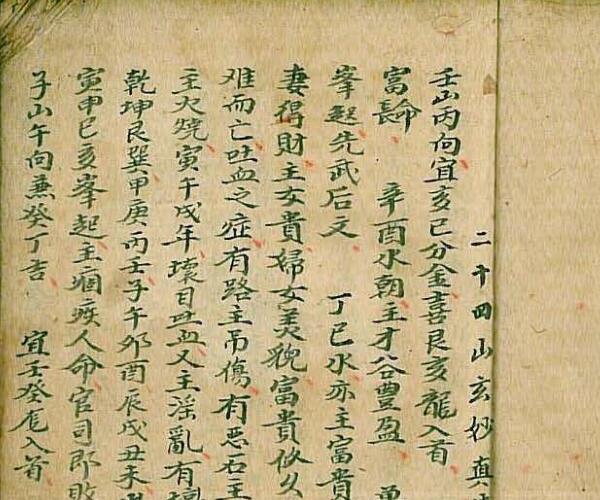 二十四山玄妙真
壬山丙向宜亥巳分金喜艮亥龍入首
富長命 辛酉水朝主才谷豐盈
峯起先武后文 丁巳水亦主富貴
妻得財主女貴婦女美貌富貴攸久
难而亡吐血之症有路主吊傷有恶石主
主火燒寅午戌年壞目吐血又主淫亂有
乾坤艮巽甲庚丙壬子午卯酉辰戌丑未
寅申巳亥峯起主痼疾人命官司即敗
子山午向兼癸丁吉 宜壬癸龙入首